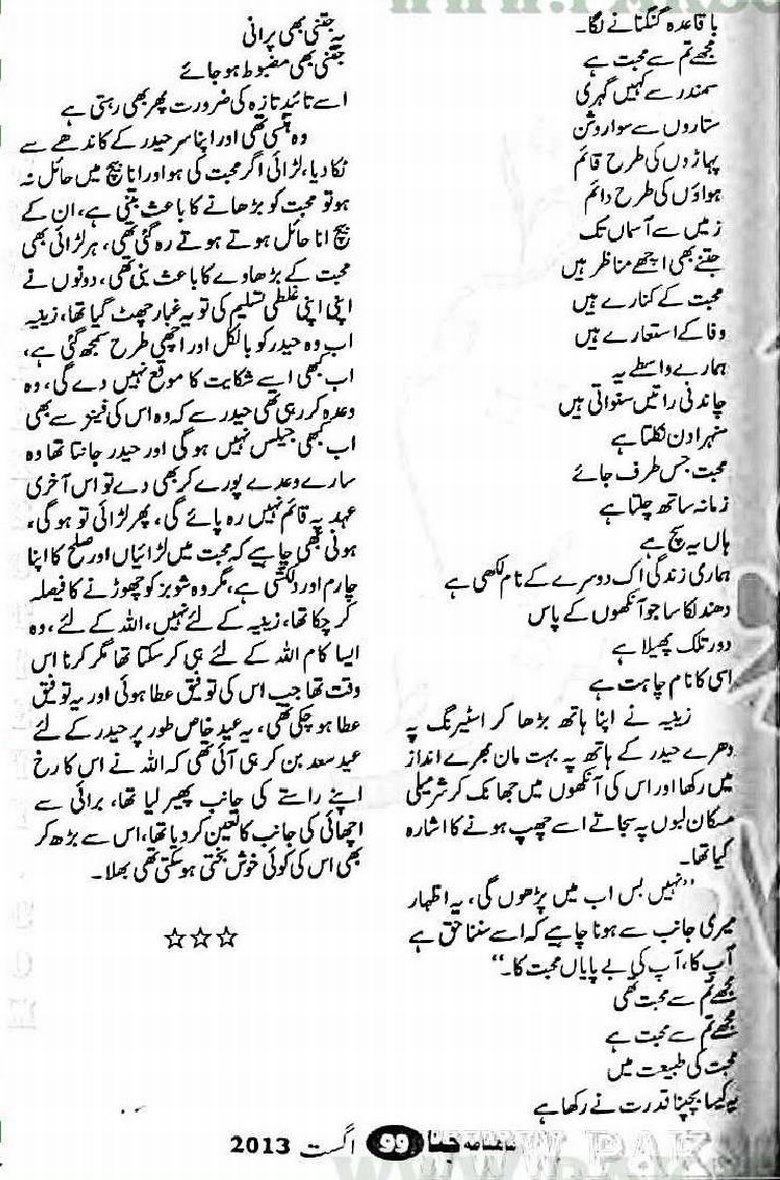 با قاعدہ گنگنانے لگا۔
مجھے تم سے محبت ہے
سمندر سے کہیں گہری
ستاروں سے سوا روشن
پہاڑوں کی طرح قائم
ہواؤں کی طرح دائم
زمیں سے آسماں تک
جتنے بھی اچھے مناظر ہیں
محبت کے کنارے ہیں
وفا کے استعارے ہیں
ہمارے واسطے یہ
چاندنی راتیں سنواتی ہیں
سنہرا دن نکلتا ہے
محبت جس طرف جائے
زمانہ ساتھ چلتا ہے
ہاں یہ سچ ہے
ہماری زندگی اک دوسرے کے نام لکھی ہے
دھندلکا سا جو آنکھوں کے پاس
دور تلک پھیلا ہے
اسی کا نام چاہت ہے
زینیہ نے اپنا ہاتھ بڑھا کر اسٹیرنگ پہ
دھرے حیدر کے ہاتھ پہ بہت مان بھرے انداز
میں رکھا اور اس کی آنکھوں میں جھانک کر شرمیلی
مسکان لبوں پہ سجاتے اسے چپ ہونے کا اشارہ
کیا تھا۔
”نہیں بس اب میں پڑھوں گی، یہ اظہار
میری جانب سے ہونا چاہیے کہ اسے سننا حق ہے
آپ کا، آپ کی بے پایاں محبت کا۔“
مجھے تم سے محبت تھی
مجھے تم سے محبت ہے
محبت کی طبیعت میں
یہ کیسا بچپنا قدرت نے رکھا ہے
یہ جتنی بھی پرانی
جتنی بھی مضبوط ہو جائے
اسے تائیدِ تازہ کی ضرورت پھر بھی رہتی ہے
وہ ہنسی تھی اور اپنا سر حیدر کے کاندھے سے
ٹکا دیا، لڑائی اگر محبت کی ہو اور انا بیچ میں حائل نہ
ہو تو محبت کو بڑھانے کا باعث بنتی ہے، ان کے
بیچ انا حائل ہوتے ہوتے رہ گئی تھی، ہر لڑائی بھی
محبت کے بڑھاوے کا باعث بنی تھی، دونوں نے
اپنی اپنی غلطی تسلیم کی تو یہ غبار چھٹ گیا تھا، زینیہ
اب وہ حیدر کو بالکل اور اچھی طرح سمجھ گئی ہے،
اب کبھی اسے شکایت کا موقع نہیں دے گی، وہ
وعدہ کر رہی تھی حیدر سے کہ وہ اس کی فینز سے بھی
اب کبھی جیلس نہیں ہو گی اور حیدر جانتا تھا وہ
سارے وعدے پورے کر بھی دے تو اس آخری
عہد پہ قائم نہیں رہ پائے گی، پھر لڑائی تو ہو گی،
ہونی بھی چاہیے کہ محبت میں لڑائیاں اور صلح کا اپنا
چارم اور دلکشی ہے، مگر وہ شوبز کو چھوڑنے کا فیصلہ
کر چکا تھا، زینیہ کے لئے نہیں، اللہ کے لئے، وہ
ایسا کام اللہ کے لئے ہی کر سکتا تھا مگر کرنا اس
وقت تھا جب اس کی توفیق عطا ہوئی اور یہ توفیق
عطا ہو چکی تھی، یہ عید خاص طور پر حیدر کے لئے
عید سعد بن کر ہی آئی تھی کہ اللہ نے اس کا رخ
اپنے راستے کی جانب پھیر لیا تھا، برائی سے
اچھائی کی جانب کا تعین کر دیا تھا، اس سے بڑھ کر
بھی اس کی کوئی خوش بختی ہو سکتی تھی بھلا۔
☆☆☆
ماہنامہ حنا 99 اگست 2013